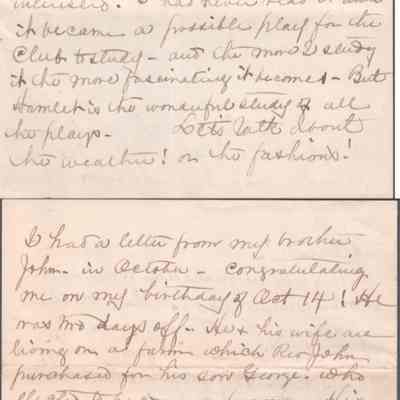 interested. I had never read it until
it became a possible play for the
Club to study - and the more I study
it the more fascinating it becomes - But
Hamlet is the wonderful study of all
the plays - Let's talk about
the weather! or the fashions!
I had a letter from my brother
John - in October - congratulating
me on my birthday of Oct 14! He
was two days off - He & his wife are
living on a farm which Rev John
purchased for his son George - who